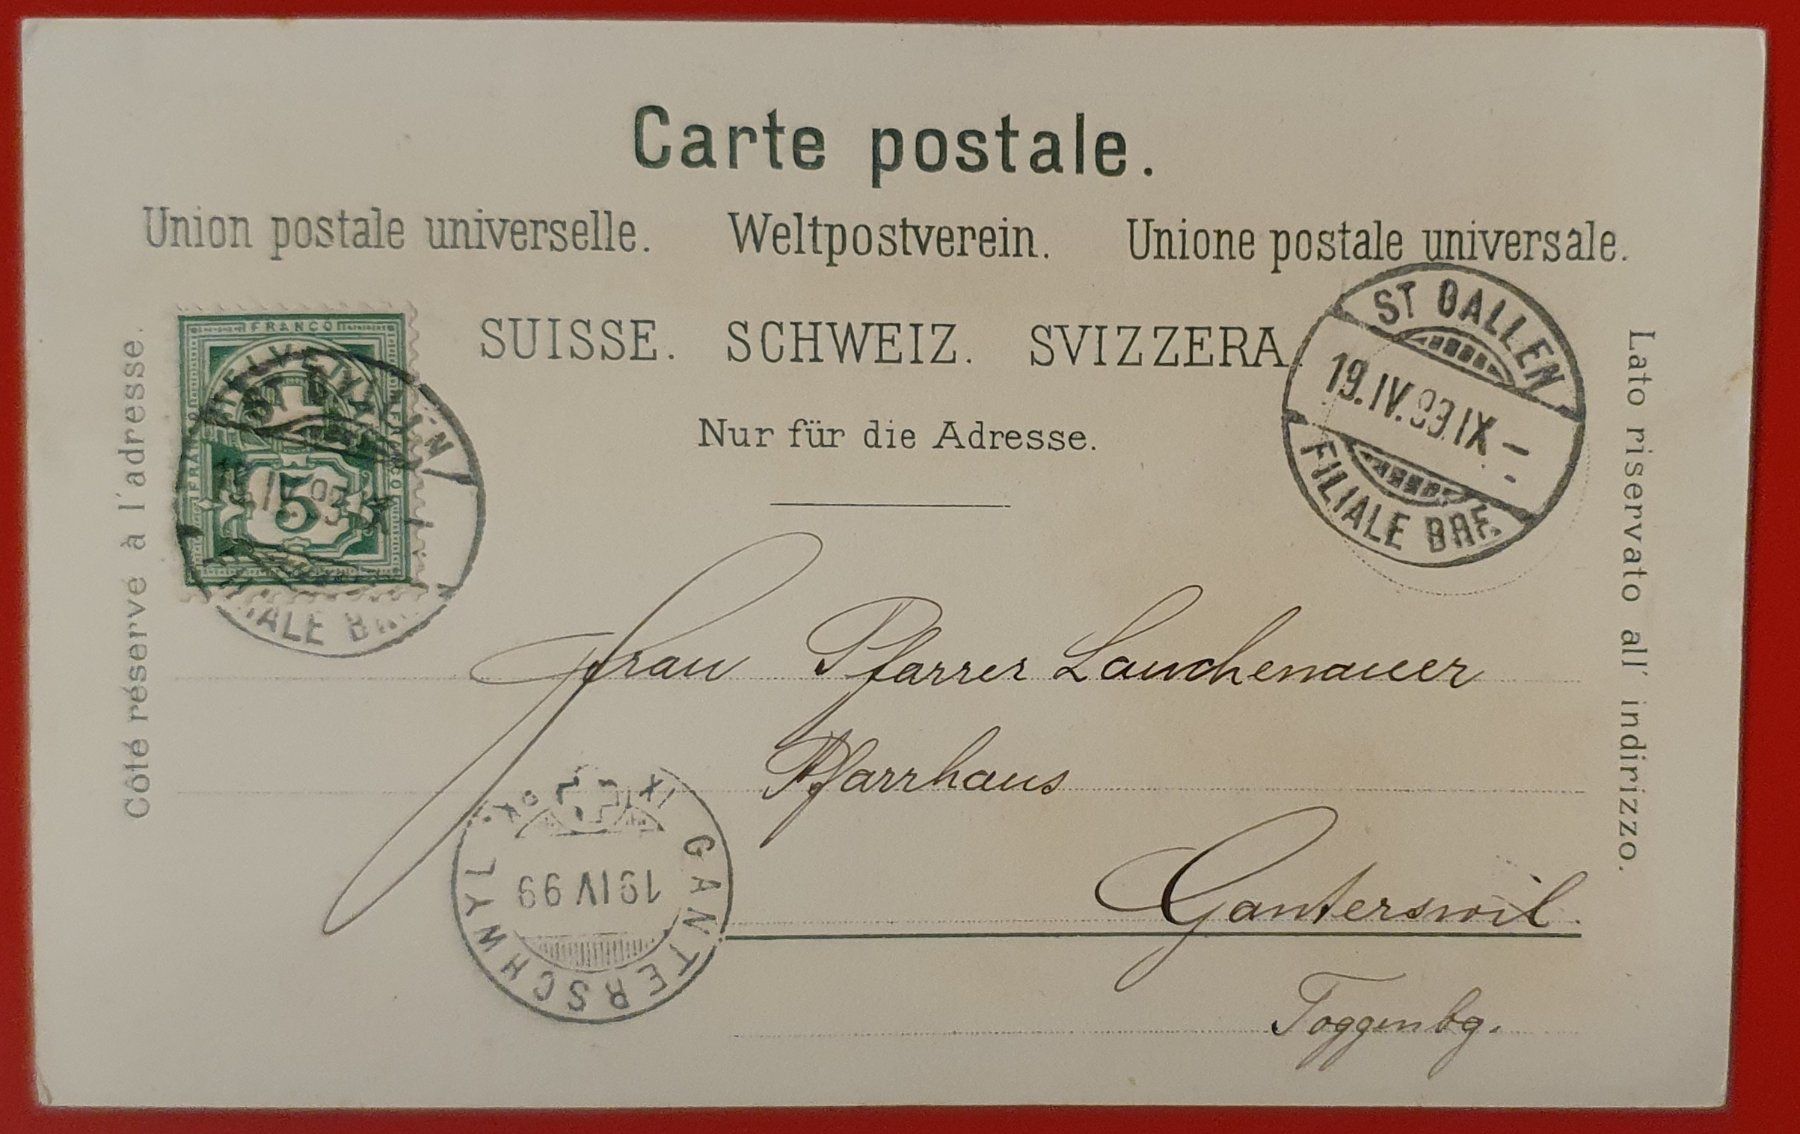 Carte postale.
Union postale universelle. Weltpostverein. Unione postale universale.
SUISSE. SCHWEIZ. SVIZZERA.
Nur für die Adresse.
Côté réservé à l'adresse.
Lato riservato all' indirizzo.
FRANCO
HELVETIA
FRANCO
FRANCO
5
FILIALE
ST GALLEN
19.IV.99.IX-
FILIALE BRF.
Frau Pfarrer Lauchenauer
Pfarrhaus
Ganterswil.
Toggenbg.
GANTERSCHWYL
19 IV 99
IX